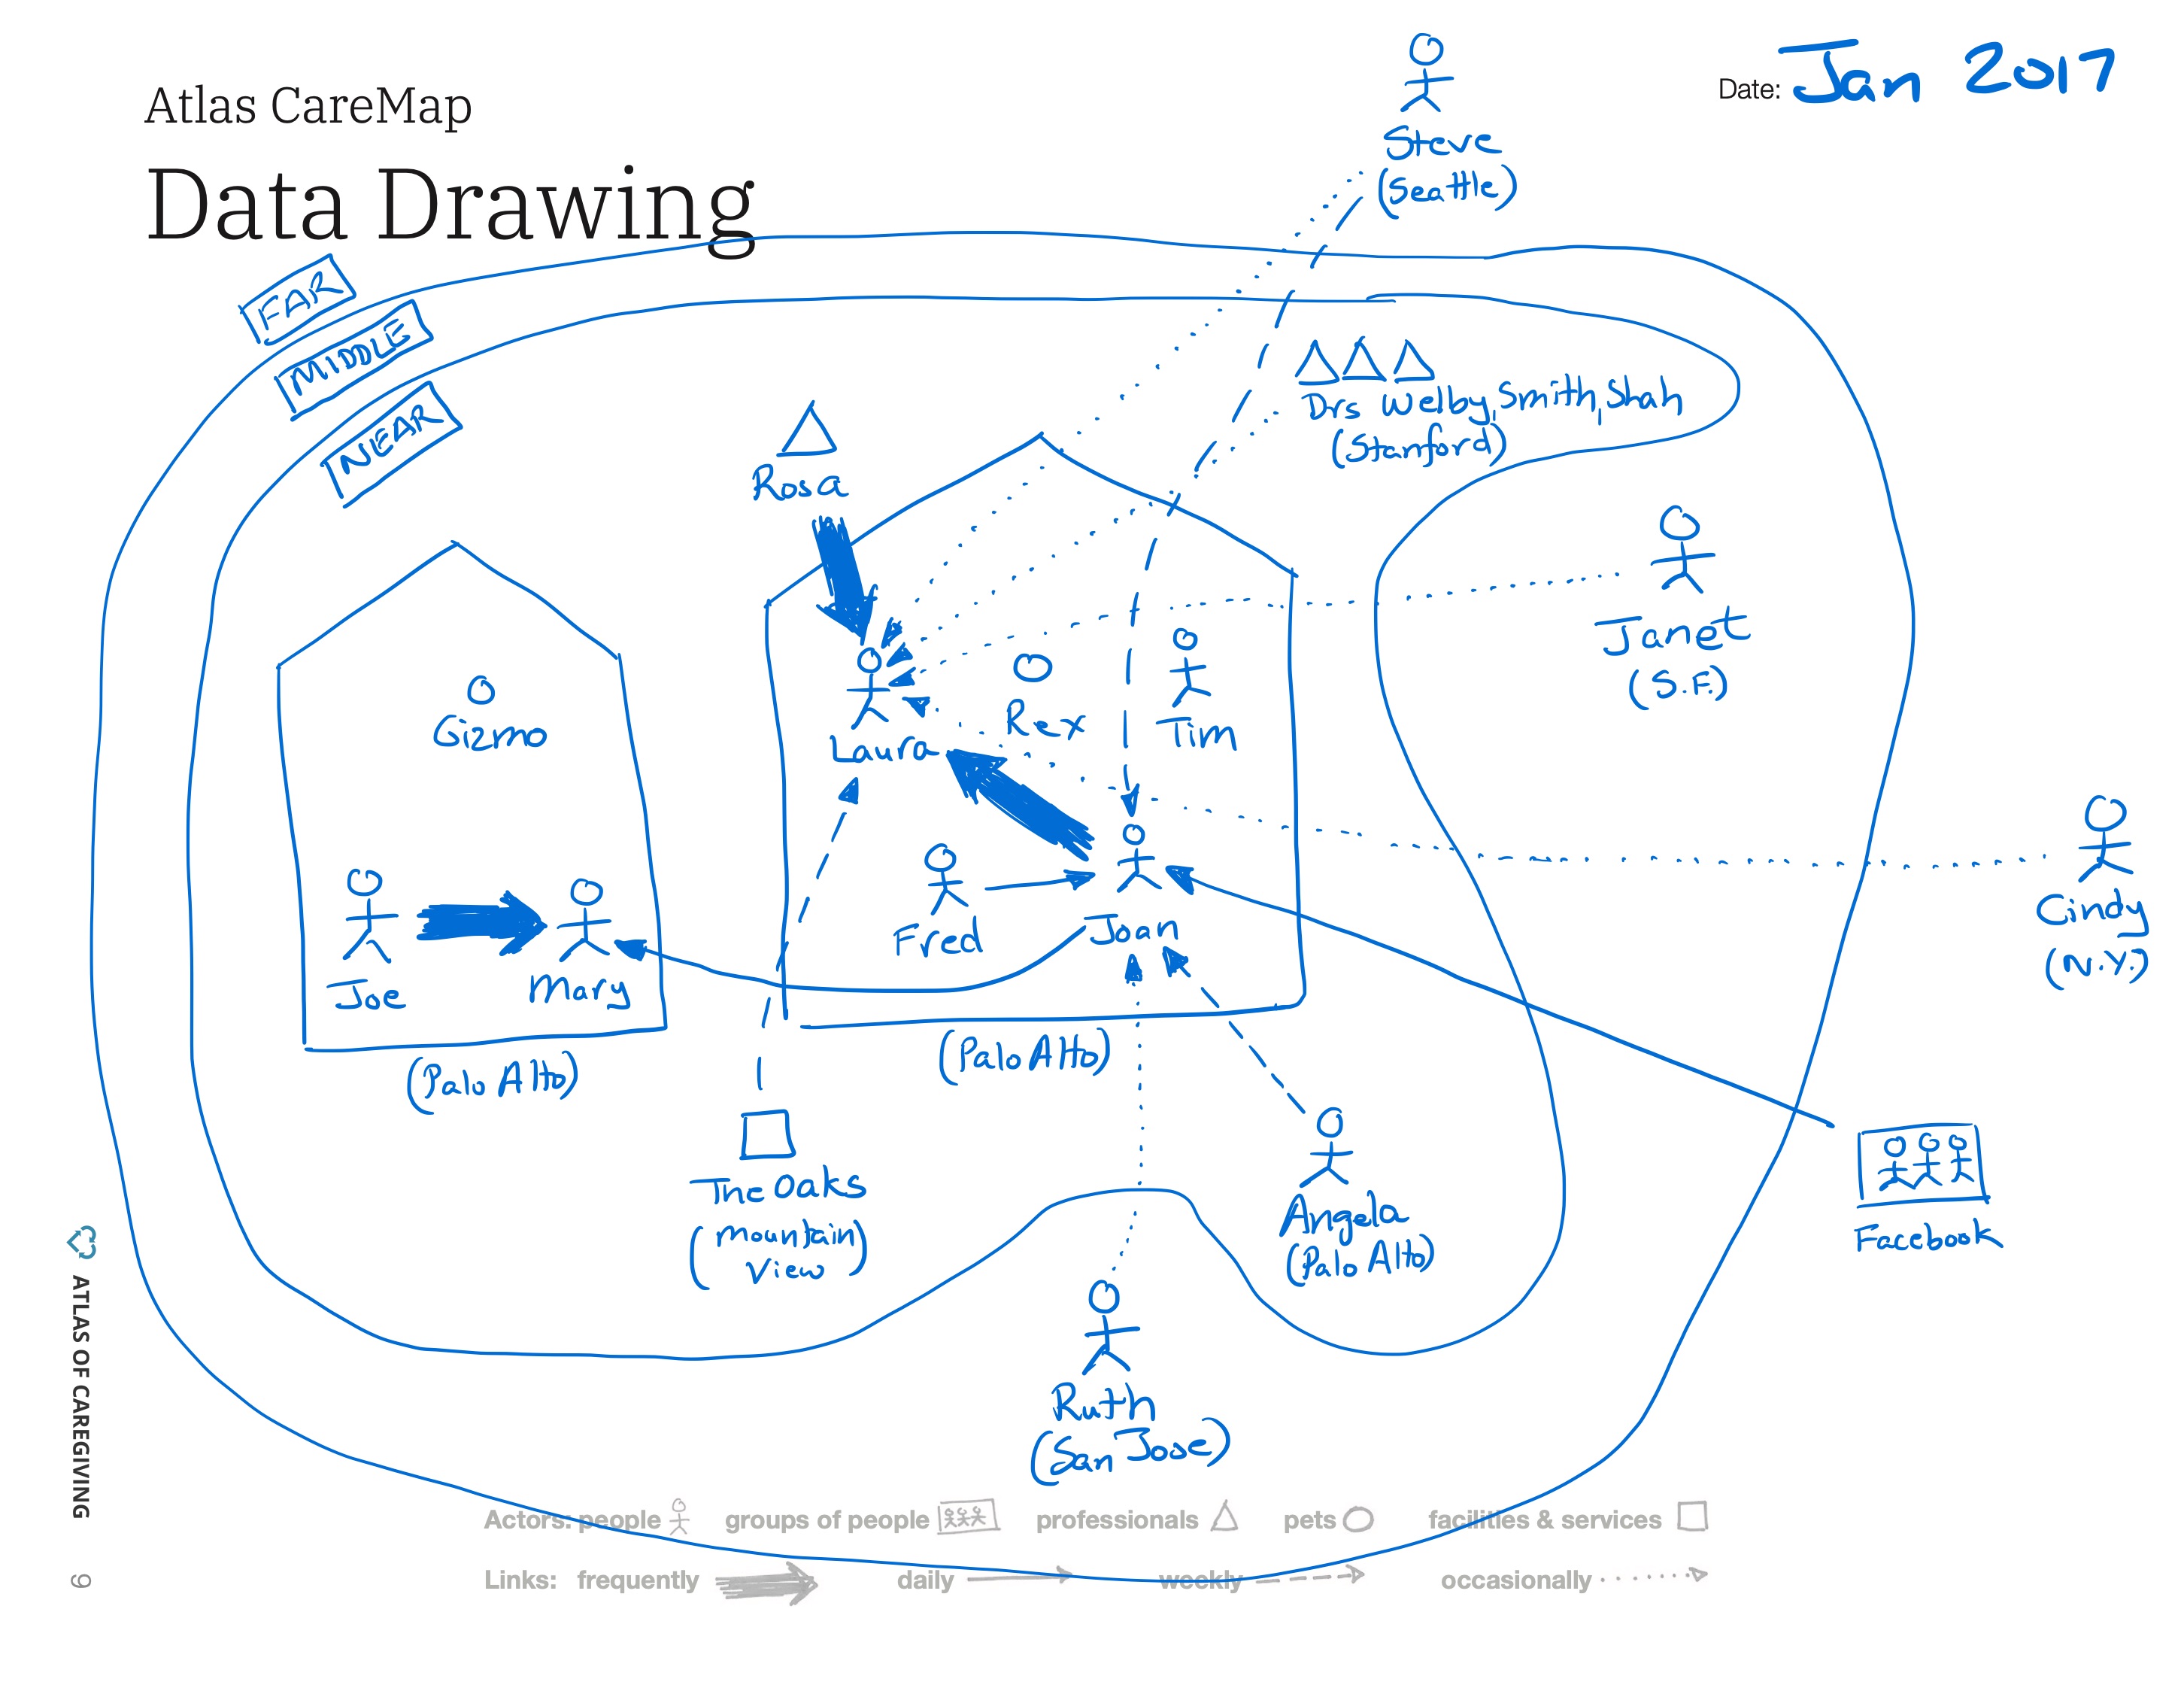 Atlas CareMap
Data Drawing
Date: Jan 2017
Steve
(Seattle)
FAR
MIDDLE
NEAR
Drs Welby, Smith, Shah
(Stanford)
Rosa
Janet
(S.F.)
Gizmo
Laura
Rex
Tim
Cindy
(N.Y.)
Joe
Mary
Fred
Joan
(Palo Alto)
(Palo Alto)
The Oaks
(Mountain
View)
Angela
(Palo Alto)
Facebook
Ruth
(San Jose)
Actors: people
groups of people
professionals
pets
facilities & services
Links: frequently
daily
weekly
occasionally
ATLAS OF CAREGIVING
9